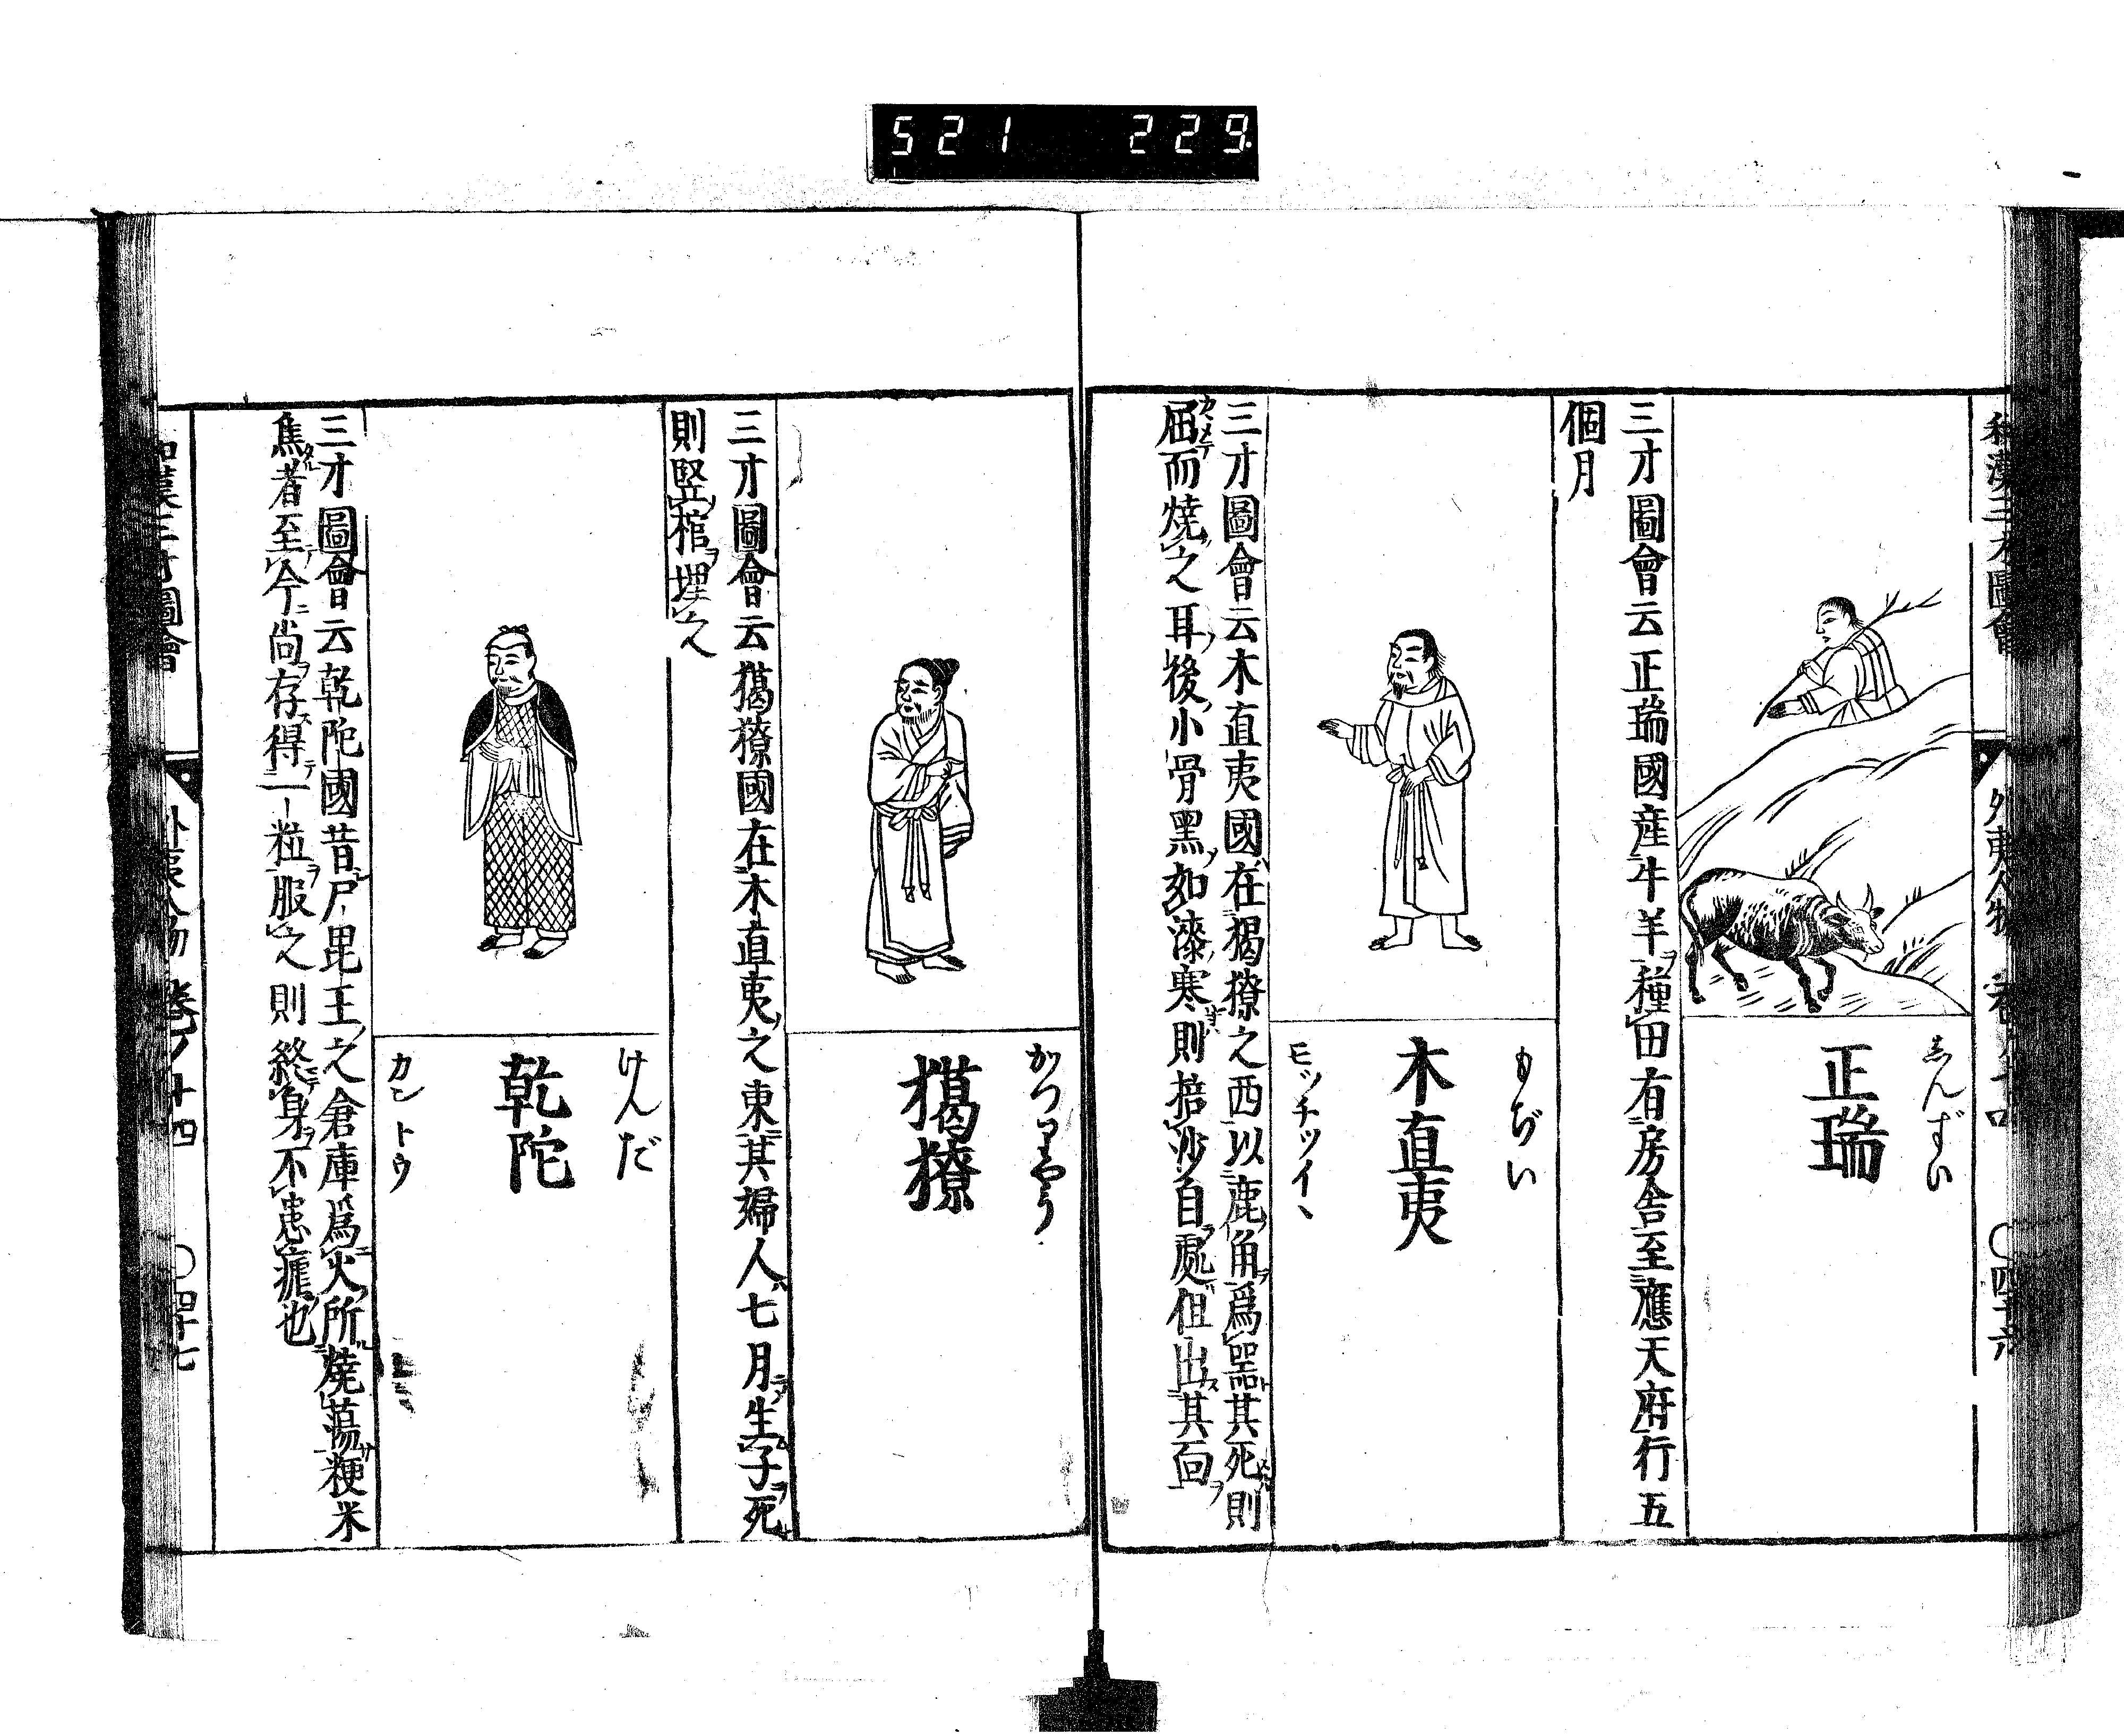 521 229
和漢三才圖會 外夷人物 卷ノ十四 〇四十六
志んずい
正瑞
三才圖會云正瑞國産牛羊種田有房舎至應天府行五
個月
もぢい
木直夷
モッチッイヽ
三才圖會云木直夷國在獦獠之西以鹿角爲器其死則
屈而焼之耳後小骨黒如漆寒則掊沙自處但出其面
かつりやう
獦獠
三才圖會云獦獠國在木直夷之東其婦人七月生子死
則竪棺埋之
けんだ
乾陀
カントウ
三才圖會云乾陀國昔尸毘王之倉庫爲火所焼蕩粳米
焦者至今尚存得一粒服之則終身不患瘧也
和漢三才圖會 外夷人物 卷ノ十四 〇四十七